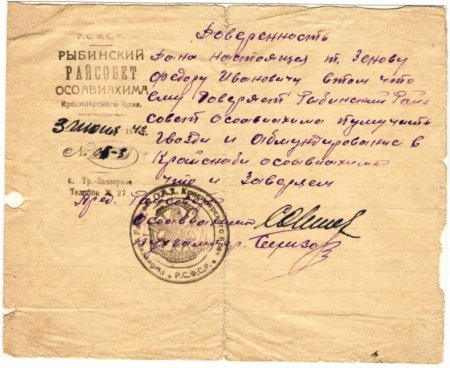 Р.С.Ф.С.Р.
РЫБИНСКИЙ
РАЙСОВЕТ
ОСОАВИАХИМА
Красноярского Края.
3 июня 1942
№ 05-31
с.
Телефон № 27
Доверенность
Дана настоящая т. Зенову
Федору Ивановичу в том что
ему доверяет Рыбинский Рай
совет осоавиахима
гвозди и Обмундирование в
Крайснабе осоавиахима
что и Заверяем
Пред. Райсовета
Осоавиахима
Р.С.Ф.С.Р.